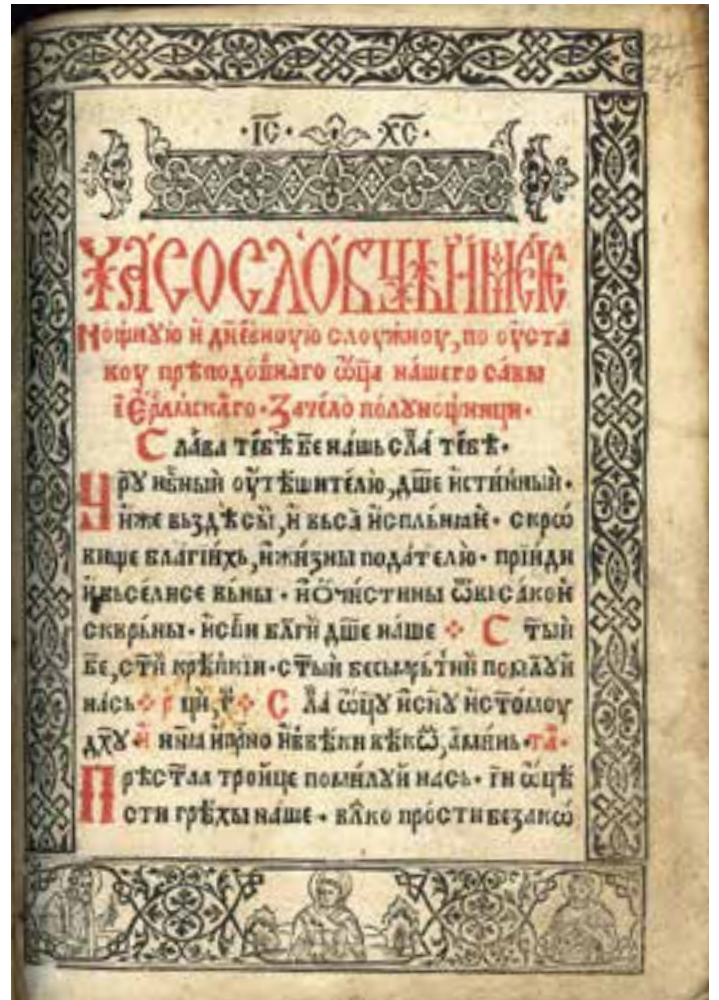 ·І҃С· ·Х҃С·
ЧАСОСЛОВ
нощную и дн҃евноую слоужбоу, по оуста
воу прѣподобнаго ѿц҃а нашего савы
іер҃лмскаго · Зачело полунощници ·
Слава тебѣ б҃е нашь сла҃ тебѣ ·
Ц҃рꙋ нб҃ный оутѣшителю, дш҃е истинный ·
иже вьздѣсы, и вьса испльнꙗѥ · скрѡ
вище благіихь, и жизны подателю · пріиди
и вьселисе вьны · и ѡчистины ѿ вьсакои
скврьны · и сп҃си бл҃ги дш҃е наше · С҃тый
б҃е, ст҃й крѣпкіи · ст҃ый бесьмрьтний помлꙋй
нась · г҃ · Сла҃ ѿц҃ꙋ и сн҃ꙋ и ст҃омоу
дх҃ꙋ и нн҃ꙗ и прⷭ҇но и вьвѣки вѣкѡ҃, аминь ·
Прѣст҃аа тройце помилꙋй нась · г҃и ѡцѣ
сти грѣхы наше · вл҃ко прости безакѡ